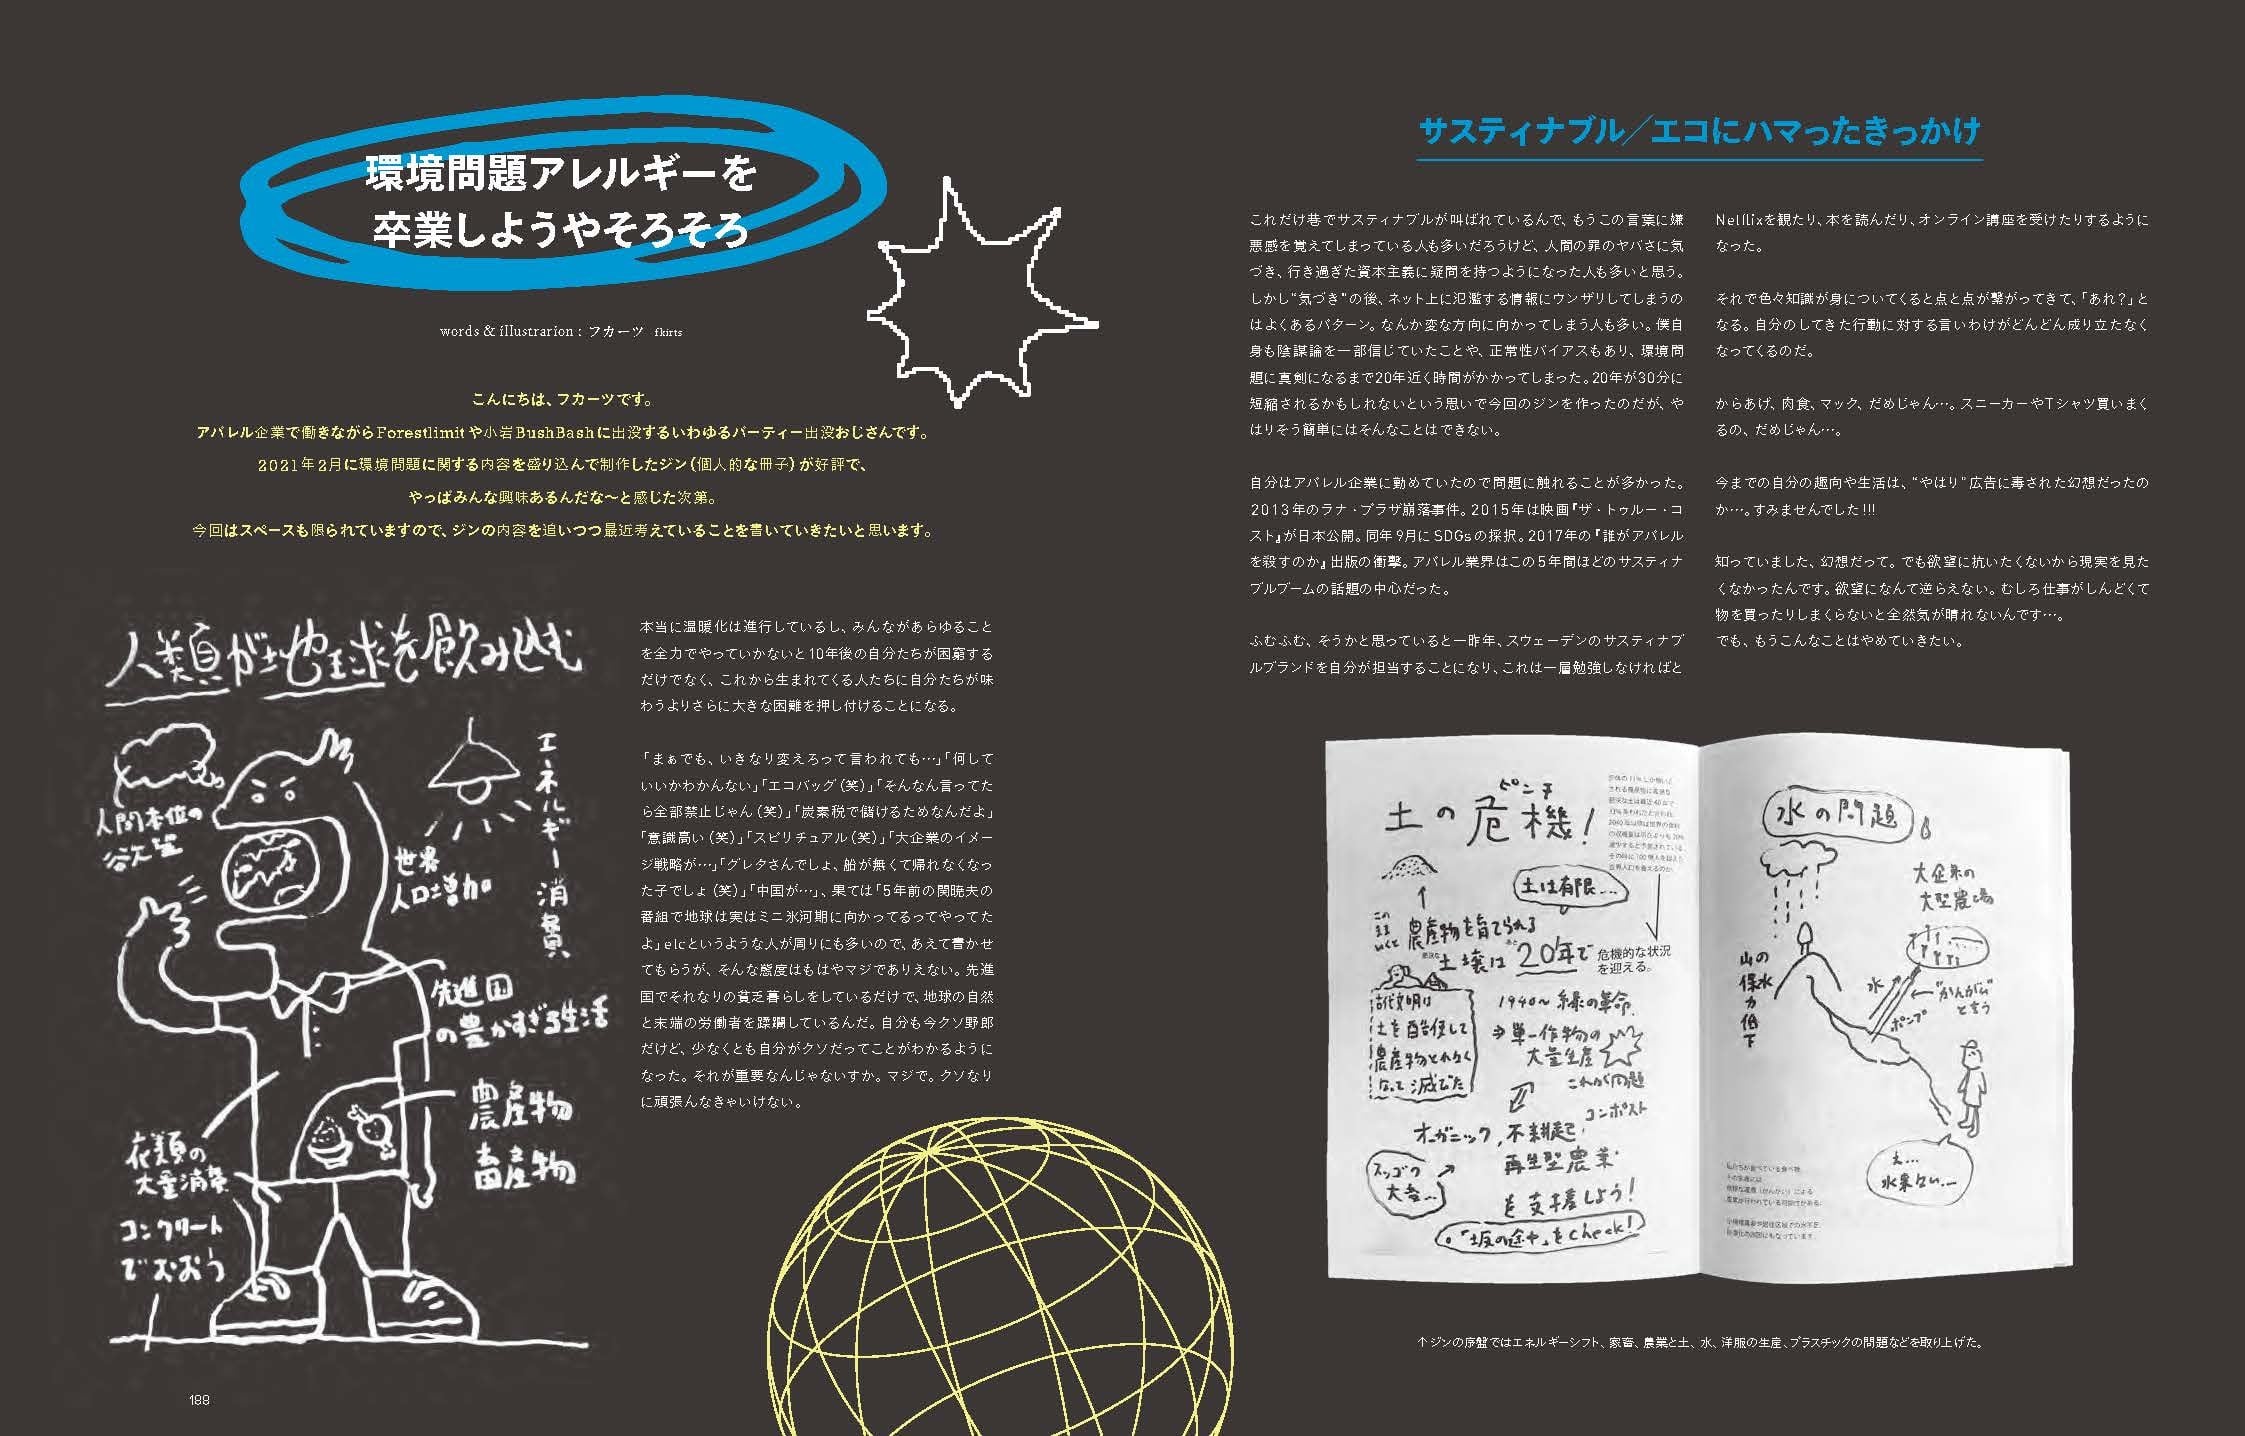 環境問題アレルギーを
卒業しようやそろそろ
words & illustrarion : フカーツ fkirts
こんにちは、フカーツです。
アパレル企業で働きながらForestlimitや小岩BushBashに出没するいわゆるパーティー出没おじさんです。
2021年2月に環境問題に関する内容を盛り込んで制作したジン（個人的な冊子）が好評で、
やっぱみんな興味あるんだな〜と感じた次第。
今回はスペースも限られていますので、ジンの内容を追いつつ最近考えていることを書いていきたいと思います。
人類が地球を飲み込む
人間本位の
欲望
世界
人口増加
エネルギー消費
先進国
の豊かすぎる生活
農産物
畜産物
衣類の
大量消費
コンクリート
でおおう
本当に温暖化は進行しているし、みんながあらゆること
を全力でやっていかないと10年後の自分たちが困窮する
だけでなく、これから生まれてくる人たちに自分たちが味
わうよりさらに大きな困難を押し付けることになる。
「まぁでも、いきなり変えろって言われても…」「何して
いいかわかんない」「エコバッグ（笑）」「そんなん言ってた
ら全部禁止じゃん（笑）」「炭素税で儲けるためなんだよ」
「意識高い（笑）」「スピリチュアル（笑）」「大企業のイメー
ジ戦略が…」「グレタさんでしょ、船が無くて帰れなくなっ
た子でしょ（笑）」「中国が…」、果ては「5年前の関暁夫の
番組で地球は実はミニ氷河期に向かってるってやってた
よ」etcというような人が周りにも多いので、あえて書かせ
てもらうが、そんな態度はもはやマジでありえない。先進
国でそれなりの貧乏暮らしをしているだけで、地球の自然
と末端の労働者を蹂躙しているんだ。自分も今クソ野郎
だけど、少なくとも自分がクソだってことがわかるように
なった。それが重要なんじゃないすか。マジで。クソなり
に頑張んなきゃいけない。
188
サスティナブル／エコにハマったきっかけ
これだけ巷でサスティナブルが叫ばれているんで、もうこの言葉に嫌
悪感を覚えてしまっている人も多いだろうけど、人間の罪のヤバさに気
づき、行き過ぎた資本主義に疑問を持つようになった人も多いと思う。
しかし“気づき”の後、ネット上に氾濫する情報にウンザリしてしまうの
はよくあるパターン。なんか変な方向に向かってしまう人も多い。僕自
身も陰謀論を一部信じていたことや、正常性バイアスもあり、環境問
題に真剣になるまで20年近く時間がかかってしまった。20年が30分に
短縮されるかもしれないという思いで今回のジンを作ったのだが、や
はりそう簡単にはそんなことはできない。
自分はアパレル企業に勤めていたので問題に触れることが多かった。
2013年のラナ・プラザ崩落事件。2015年は映画『ザ・トゥルー・コ
スト』が日本公開。同年9月にSDGsの採択。2017年の『誰がアパレル
を殺すのか』出版の衝撃。アパレル業界はこの5年間ほどのサスティナ
ブルブームの話題の中心だった。
ふむふむ、そうかと思っていると一昨年、スウェーデンのサスティナブ
ルブランドを自分が担当することになり、これは一層勉強しなければと
Netflixを観たり、本を読んだり、オンライン講座を受けたりするように
なった。
それで色々知識が身についてくると点と点が繋がってきて、「あれ？」と
なる。自分のしてきた行動に対する言いわけがどんどん成り立たなく
なってくるのだ。
からあげ、肉食、マック、だめじゃん…。スニーカーやTシャツ買いまく
るの、だめじゃん…。
今までの自分の趣向や生活は、“やはり”広告に毒された幻想だったの
か…。すみませんでした!!!
知っていました、幻想だって。でも欲望に抗いたくないから現実を見た
くなかったんです。欲望になんて逆らえない。むしろ仕事がしんどくて
物を買ったりしまくらないと全然気が晴れないんです…。
でも、もうこんなことはやめていきたい。
ピンチ
土の危機！
土は有限…
このままいくと
農産物を育てられる
土壌は 20年で
危機的な状況
を迎える。
古代文明は
土を酷使して
農産物とれなく
なって滅びた
1940〜 緑の革命
⇒単一作物の
大量生産
これが問題
コンポスト
オーガニック、不耕起、
再生型農業
を支援しよう！
スッゴク
大事…
「坂の途中」をCheck！
水の問題
大企業の
大型農場
山の
保水
力低下
水
ポンプ
←“かんがい”
と言う
え…
水来ない…
↑ジンの序盤ではエネルギーシフト、家畜、農業と土、水、洋服の生産、プラスチックの問題などを取り上げた。